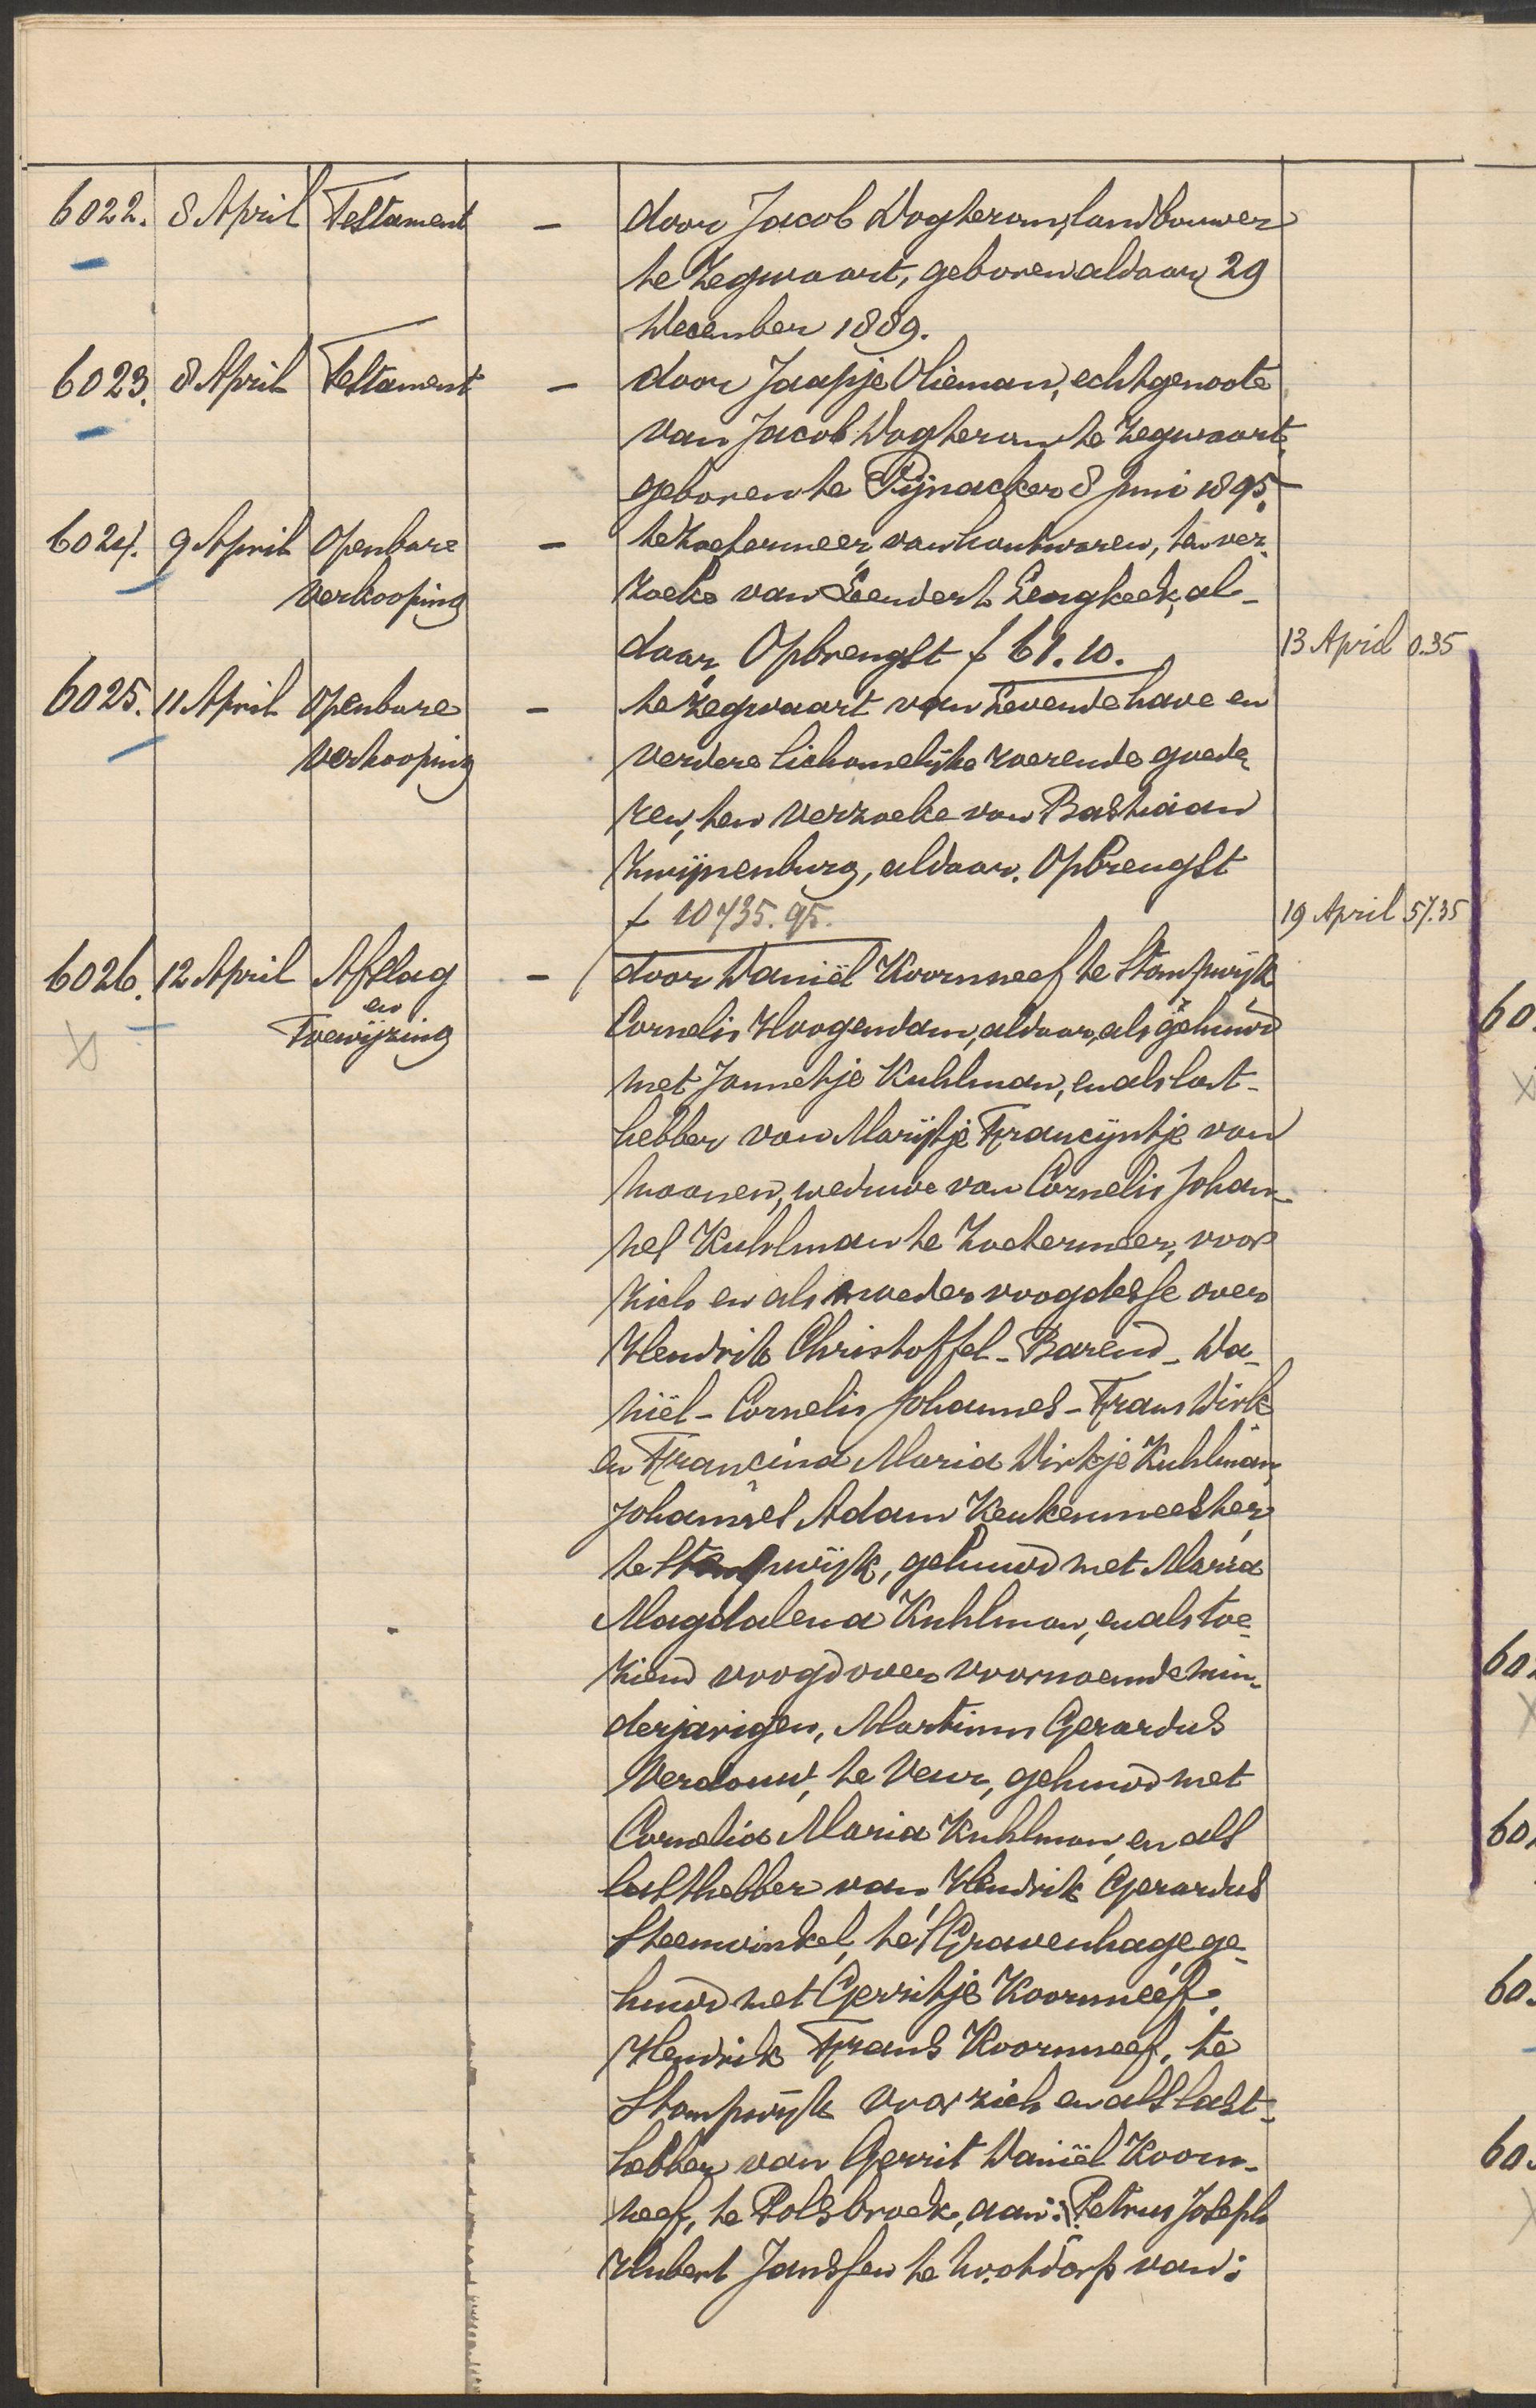 6022. 8 April Testament - door Jacob Dogterom, landbouwer
te Zegwaart, geboren aldaar 29
December 1889.
6023. 8 April Testament - door Jaapje Olieman, echtgenoote
van Jacob Dogterom te Zegwaart,
geboren te Pijnacker 8 Juni 1895.
6024. 9 April Openbare - te Zoetermeer, van houtwaren, ten ver-
verkooping zoeke van Leendert Lengkeek, al-
daar, Opbrengst f 61.10. 13 April 0.35
6025. 11 April Openbare - te Zegwaart van levende have en
verkooping verdere lichamelijke roerende goede-
ren, ten verzoeke van Bastiaan
Zwijnenburg, aldaar. Opbrengst
f 10735.95. 19 April 57.35
6026. 12 April Afslag - door Daniël Koornneef te Stompwijk
en
Toewijzing Cornelis Hoogendam, aldaar, als gehuwd
met Jannetje Kuhlman, en als last-
hebber van Marijtje Francijntje van
Haanen, weduwe van Cornelis Johan-
nes Kuhlman te Zoetermeer, voor
zich en als moeder voogdesse over
Hendrik Christoffel - Barend - Da-
niël - Cornelis Johannes - Frans Dirk
en Francina Maria Dirkje Kuhlman,
Johannes Adam Keukenmeester,
te Stompwijk, gehuwd met Maria
Magdalena Kuhlman, en als toe-
ziend voogd over voornoemde min-
derjarigen, Martinus Gerardus
Verdouw, te Veur, gehuwd met
Cornelia Maria Kuhlman, en als
lasthebber van Hendrik Gerardus
Steenwinkel, te 's Gravenhage ge-
huwd met Gerritje Koornneef.
Hendrik Frans Koornneef, te
Stompwijk voor zich en als last-
hebber van Gerrit Daniël Koorn-
neef, te Polsbroek, aan: Petrus Joseph
Hubert Janssen te Nootdorp van: